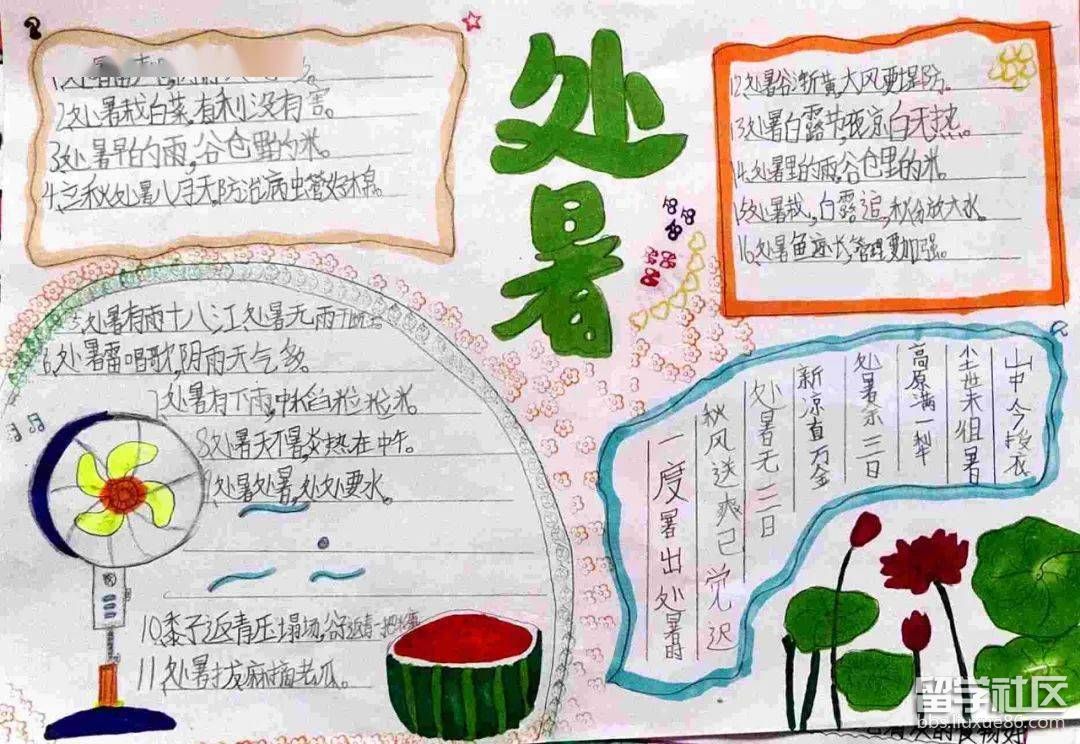 处暑
2.处暑栽白菜,有利没有害。
3.处暑早的雨,谷仓里的米。
4.立秋处暑八月天,防治病虫管好棉。
处暑有雨十八江,处暑无雨
6.处暑雷唱歌,阴雨天气多。
处暑有下雨,中稻粒粒米。
8.处暑天不暑,炎热在中午。
处暑处暑,处处要水。
10.黍子返青压塌场,谷子返青一把糠
11.处暑拔麻摘老瓜。
12.处暑谷渐黄,大风要提防。
13.处暑白露节,夜凉白天热。
14.处暑里的雨,谷仓里的米。
15.处暑栽,白露追,秋分放大水。
16.处暑鱼速长,管理要加强。
山中今授衣
尘世未徂暑
高原满一犁
处暑余三日
新凉直万金
处暑无三日
秋风送爽已觉迟
一度暑出处暑时
留学社区
bbs.liuxue86.com